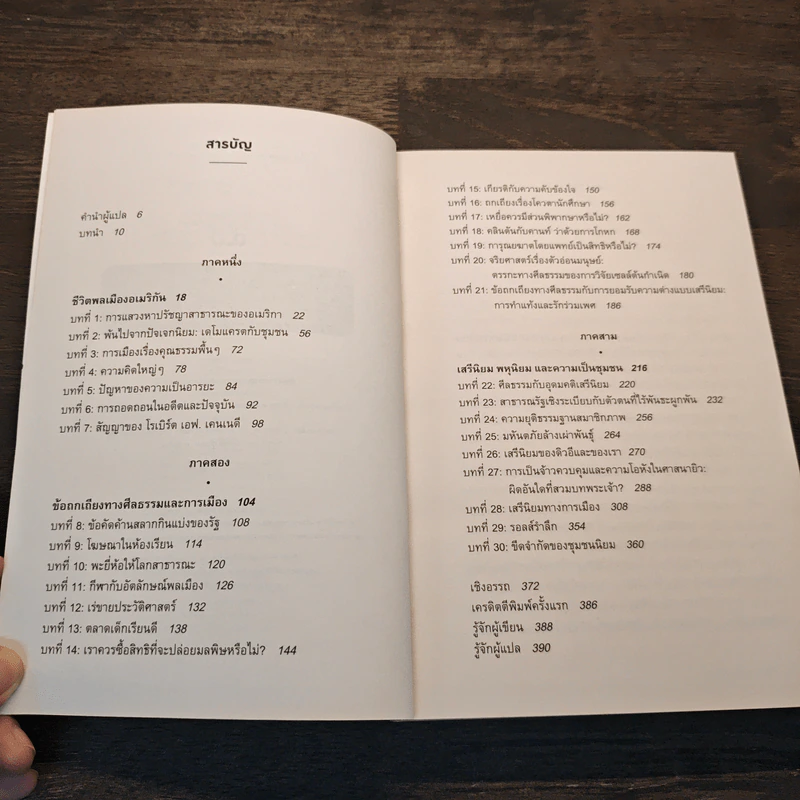 สารบัญ
คำนำผู้แปล 6
บทนำ 10
ภาคหนึ่ง
•
ชีวิตพลเมืองอเมริกัน 18
บทที่ 1: การแสวงหาปรัชญาสาธารณะของอเมริกา 22
บทที่ 2: พ้นไปจากปัจเจกนิยม: เดโมแครตกับชุมชน 56
บทที่ 3: การเมืองเรื่องคุณธรรมพื้นๆ 72
บทที่ 4: ความคิดใหญ่ๆ 78
บทที่ 5: ปัญหาของความเป็นอารยะ 84
บทที่ 6: การถอดถอนในอดีตและปัจจุบัน 92
บทที่ 7: สัญญาของ โรเบิร์ต เอฟ. เคนเนดี 98
ภาคสอง
•
ข้อถกเถียงทางศีลธรรมและการเมือง 104
บทที่ 8: ข้อคัดค้านสลากกินแบ่งของรัฐ 108
บทที่ 9: โฆษณาในห้องเรียน 114
บทที่ 10: พะยี่ห้อให้โลกสาธารณะ 120
บทที่ 11: กีฬากับอัตลักษณ์พลเมือง 126
บทที่ 12: เร่ขายประวัติศาสตร์ 132
บทที่ 13: ตลาดเด็กเรียนดี 138
บทที่ 14: เราควรซื้อสิทธิที่จะปล่อยมลพิษหรือไม่? 144
บทที่ 15: เกียรติกับความคับข้องใจ 150
บทที่ 16: ถกเถียงเรื่องโควตานักศึกษา 156
บทที่ 17: เหยื่อควรมีส่วนพิพากษาหรือไม่? 162
บทที่ 18: คลินตันกับคานท์ ว่าด้วยการโกหก 168
บทที่ 19: การุณยฆาตโดยแพทย์เป็นสิทธิหรือไม่? 174
บทที่ 20: จริยศาสตร์เรื่องตัวอ่อนมนุษย์:
ตรรกะทางศีลธรรมของการวิจัยเซลล์ต้นกำเนิด 180
บทที่ 21: ข้อถกเถียงทางศีลธรรมกับการยอมรับความต่างแบบเสรีนิยม:
การทำแท้งและรักร่วมเพศ 186
ภาคสาม
•
เสรีนิยม พหุนิยม และความเป็นชุมชน 216
บทที่ 22: ศีลธรรมกับอุดมคติเสรีนิยม 220
บทที่ 23: สาธารณรัฐเชิงระเบียบกับตัวตนที่ไร้พันธะผูกพัน 232
บทที่ 24: ความยุติธรรมฐานสมาชิกภาพ 256
บทที่ 25: มหันตภัยล้างเผ่าพันธุ์ 264
บทที่ 26: เสรีนิยมของดิวอีและของเรา 270
บทที่ 27: การเป็นจ้าวควบคุมและความโอหังในศาสนายิว:
ผิดอันใดที่สวมบทพระเจ้า? 288
บทที่ 28: เสรีนิยมทางการเมือง 308
บทที่ 29: รอลส์รำลึก 354
บทที่ 30: ขีดจำกัดของชุมชนนิยม 360
เชิงอรรถ 372
เครดิตตีพิมพ์ครั้งแรก 386
รู้จักผู้เขียน 388
รู้จักผู้แปล 390